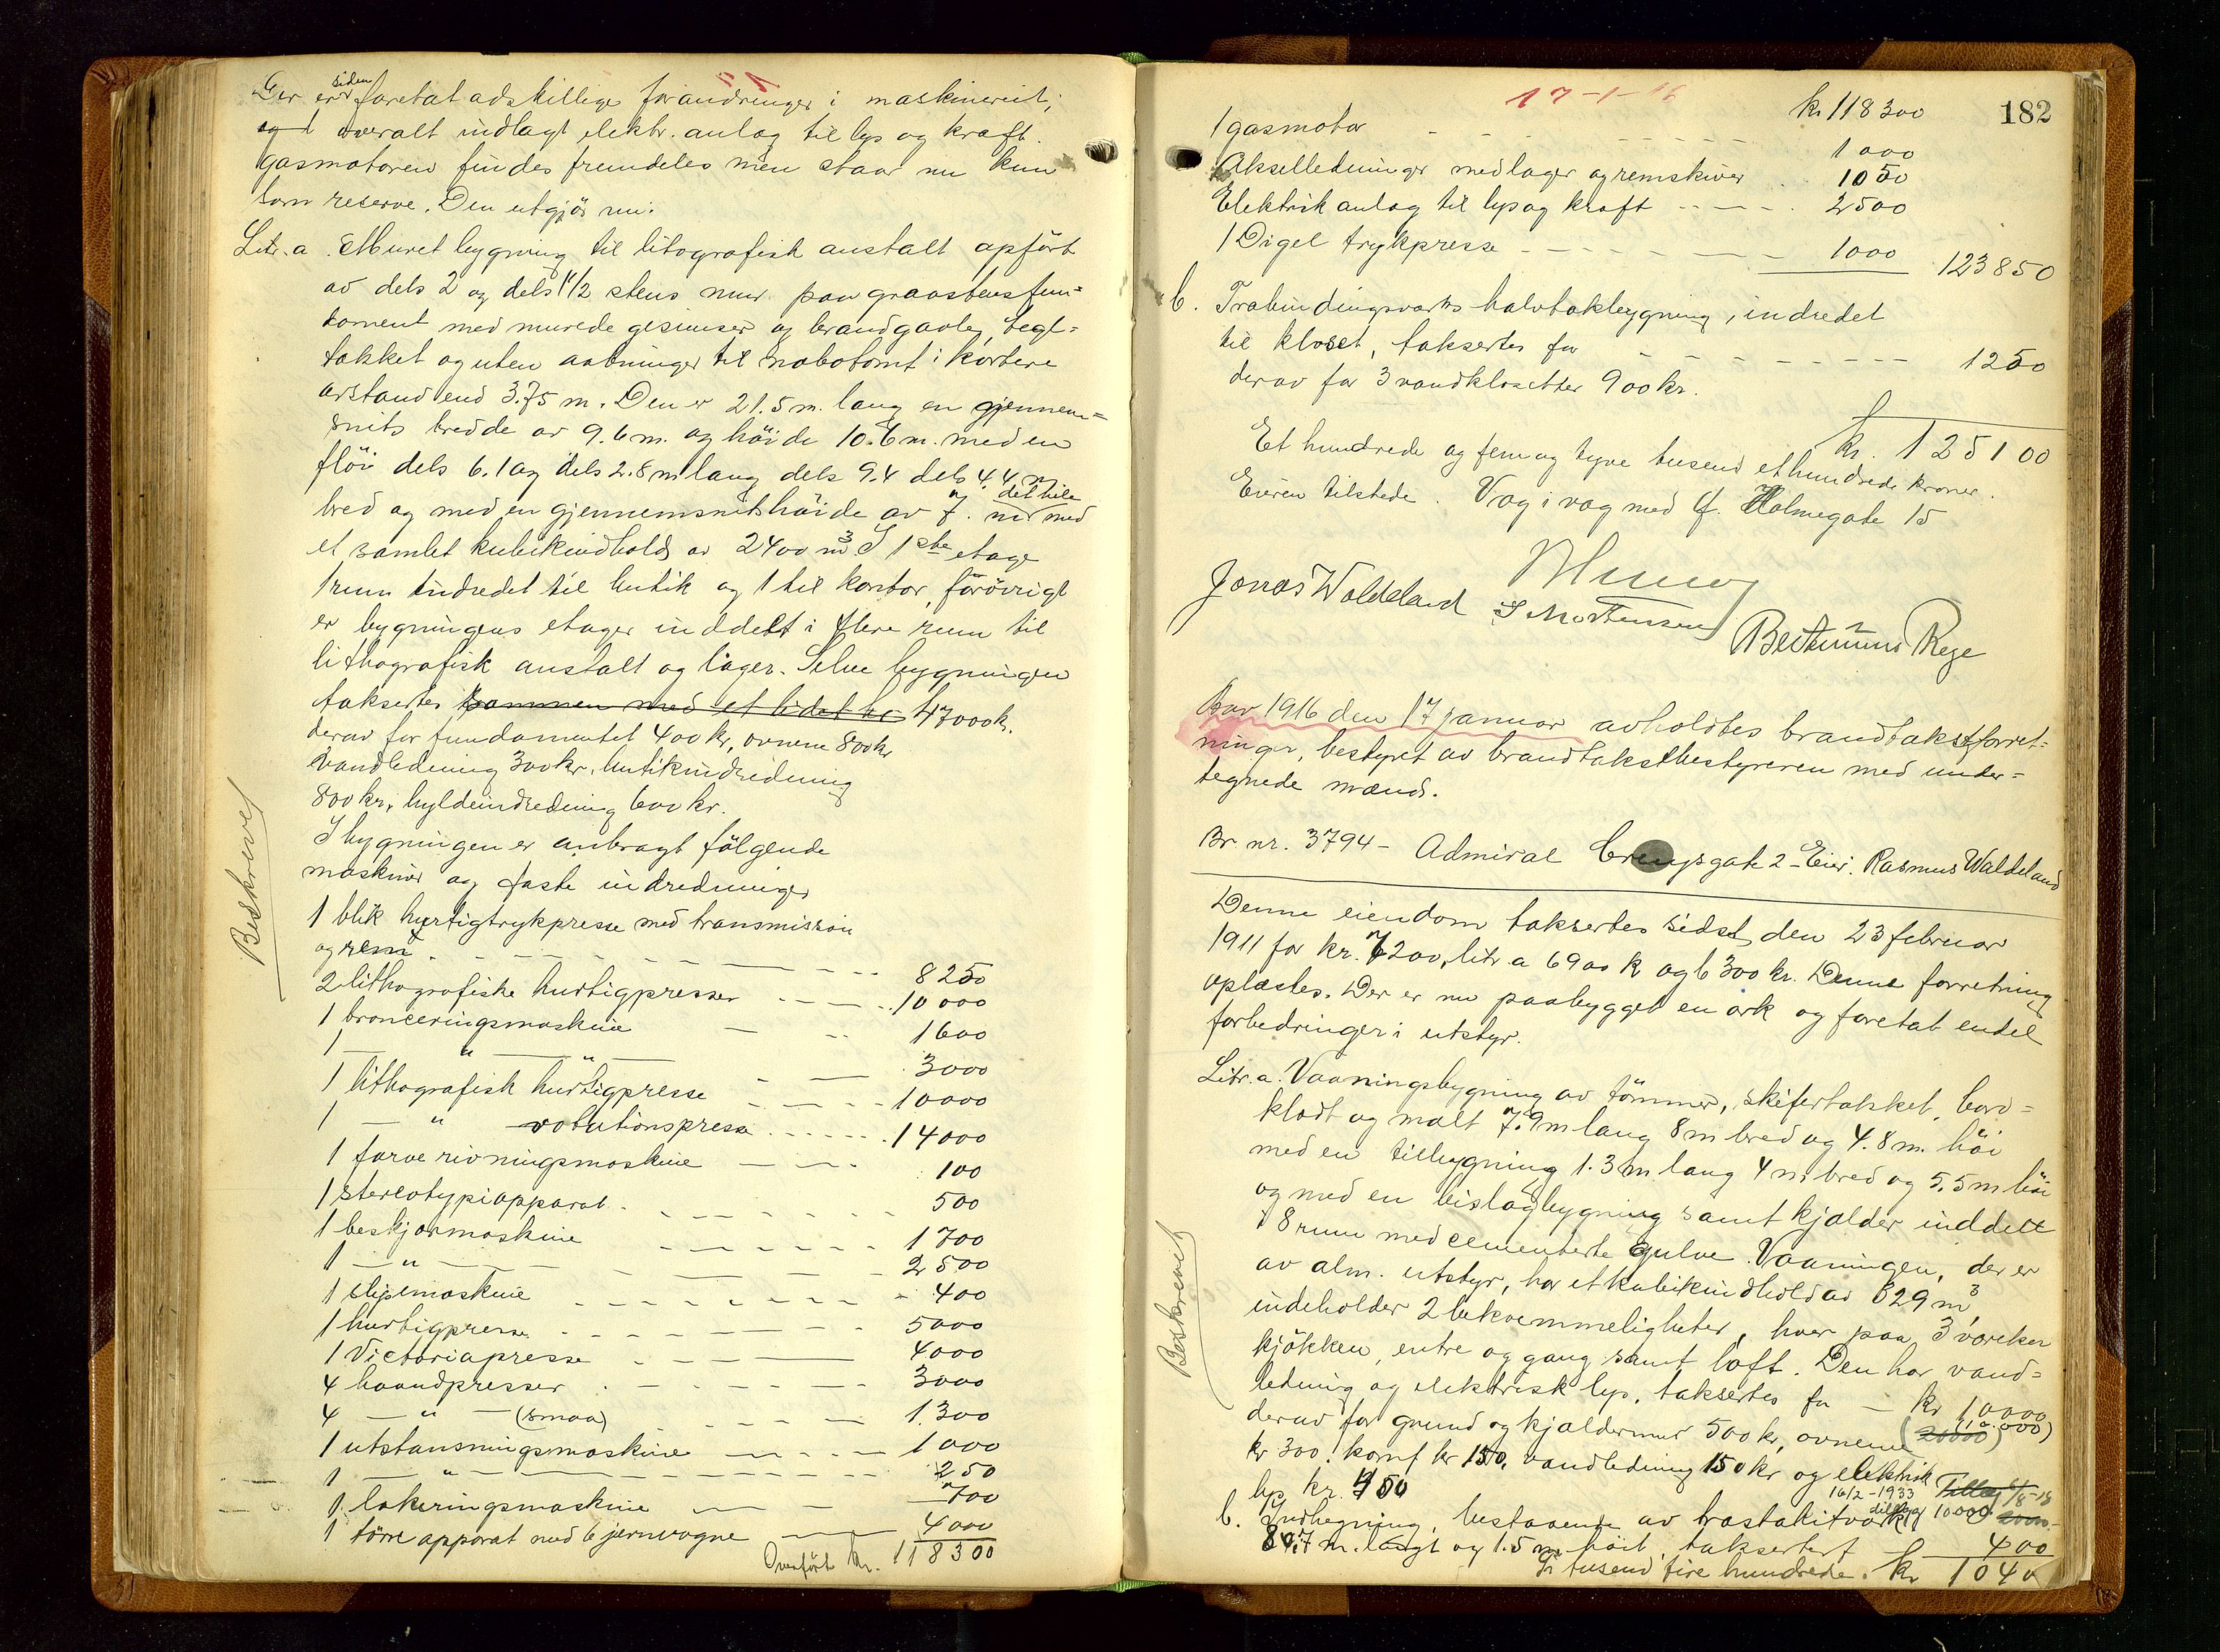 Der er siden foretat adskillige forandringer i maskineriet,
og overalt indlagt elektr. anlæg til lys og kraft.
Gasmotoren findes fremdeles men staar nu kun
som reserve. Den utgjör nu:
Litr. a. Muret bygning til litografisk anstalt opfört
av dels 2 og dels 1 1/2 stens mur paa graastensfun=
dament med murede gesimser og brandgavle, tegl=
takket og uten aabninger til nabotomt i kortere
avstand end 3.75 m. Den er 21.5 m. lang en gjennem=
snits bredde av 9.6 m. og höide 10.6 m. med en
flöi dels 6.1 og dels 2.8 m lang dels 9.4 dels 4.4 m
bred og med en gjennemsnitshöide av 7. m og det hele med
et samlet kubikindhold av 2400 m³. I 1ste etage
1 rum indredet til butik og 1 til kontor, forövrigt
er bygningens etager inddelt i flere rum til
lithografisk anstalt og lager. Selve bygningen
taksertes sammen med et lidet 47000 kr.
derav for fundamentet 400 kr, ovnene 800 kr
vandledning 300 kr, butikindredning
800 kr, hyldeindredning 600 kr.
Beskrevet
I bygningen er anbragt fölgende
maskiner og faste indredninger
1 blik hurtigtrykpresse med transmission
og rem 8250
2 lithografiske hurtigpresser 10000
1 bronceringsmaskine 1600
1 — " — " — 3000
1 lithografisk hurtigpresse 10000
1 — " rotationspresse 14000
1 farverivningsmaskine 100
1 stereotypiapparat 500
1 beskjærmaskine 1700
1 — " — 2500
1 slipemaskine 400
1 hurtigpresse 5000
1 Victoriapresse 4000
4 haandpresser 3000
4 — " — (smaa) 1300
1 utstansningsmaskine 1000
1 — " — 250
1 lakeringsmaskine 700
1 törreapparat med 6 jernvogne 4000
Overfört kr. 118300
17-1-16
182
kr 118300
1 gasmotor 1000
Akselledninger med lager og remskiver 1050
Elektrisk anlæg til lys og kraft 2500
1 Digel trykpresse 1000 123850
b. Træbindingsverks halvtakbygning, indredet
til kloset, taksertes for 1250
derav for 3 vandklosetter 900 kr.
kr. 125100
Et hundrede og fem og tyve tusend et hundrede kroner.
Eieren tilstede. Væg i væg med Holmegate 15
Jonas Waldeland
S Mortensen
Berthinius Rege
Aar 1916 den 17 januar avholdtes brandtakstforret=
ninger, bestyret av brandtakstbestyreren med under=
tegnede mænd.
Br nr. 3794 - Admiral Cruysgate 2 - Eier: Rasmus Waldeland
Denne eiendom taksertes sidst den 23 februar
1911 for kr. 7200, litr. a 6900 kr og b 300 kr. Denne forretning
oplæstes. Der er nu paabygget en ark og foretat endel
forbedringer i utstyr.
Litr. a. Vaaningsbygning av tömmer, skifertakket, bord=
klædt og malt 7.9 m lang 8 m bred og 4.8 m. höi
med en tilbygning 1.3 m lang 4 m bred og 5.5 m höi
og med en bislagbygning samt kjælder inddelt
i 8 rum med cementerte gulve. Vaaningen, der er
av alm. utstyr, har et kubikindhold av 329 m³,
Beskrevet
indeholder 2 bekvemmeligheter, hver paa 3 værelser
kjökken, entre og gang samt loft. Den har vand=
ledning og elektrisk lys, taksertes for — kr 10000
derav for grund og kjældermur 500 kr, ovnene (20000)
kr 300, komf kr 150, vandledning 150 kr og elektrisk
lys kr. 450
16/2-1933 tillæg 10000
b. Indhegning, bestaaende av træstakitverk
80.7 m. langt og 1.5 m höit, taksertest 400
Ti tusend fire hundrede. kr 1040